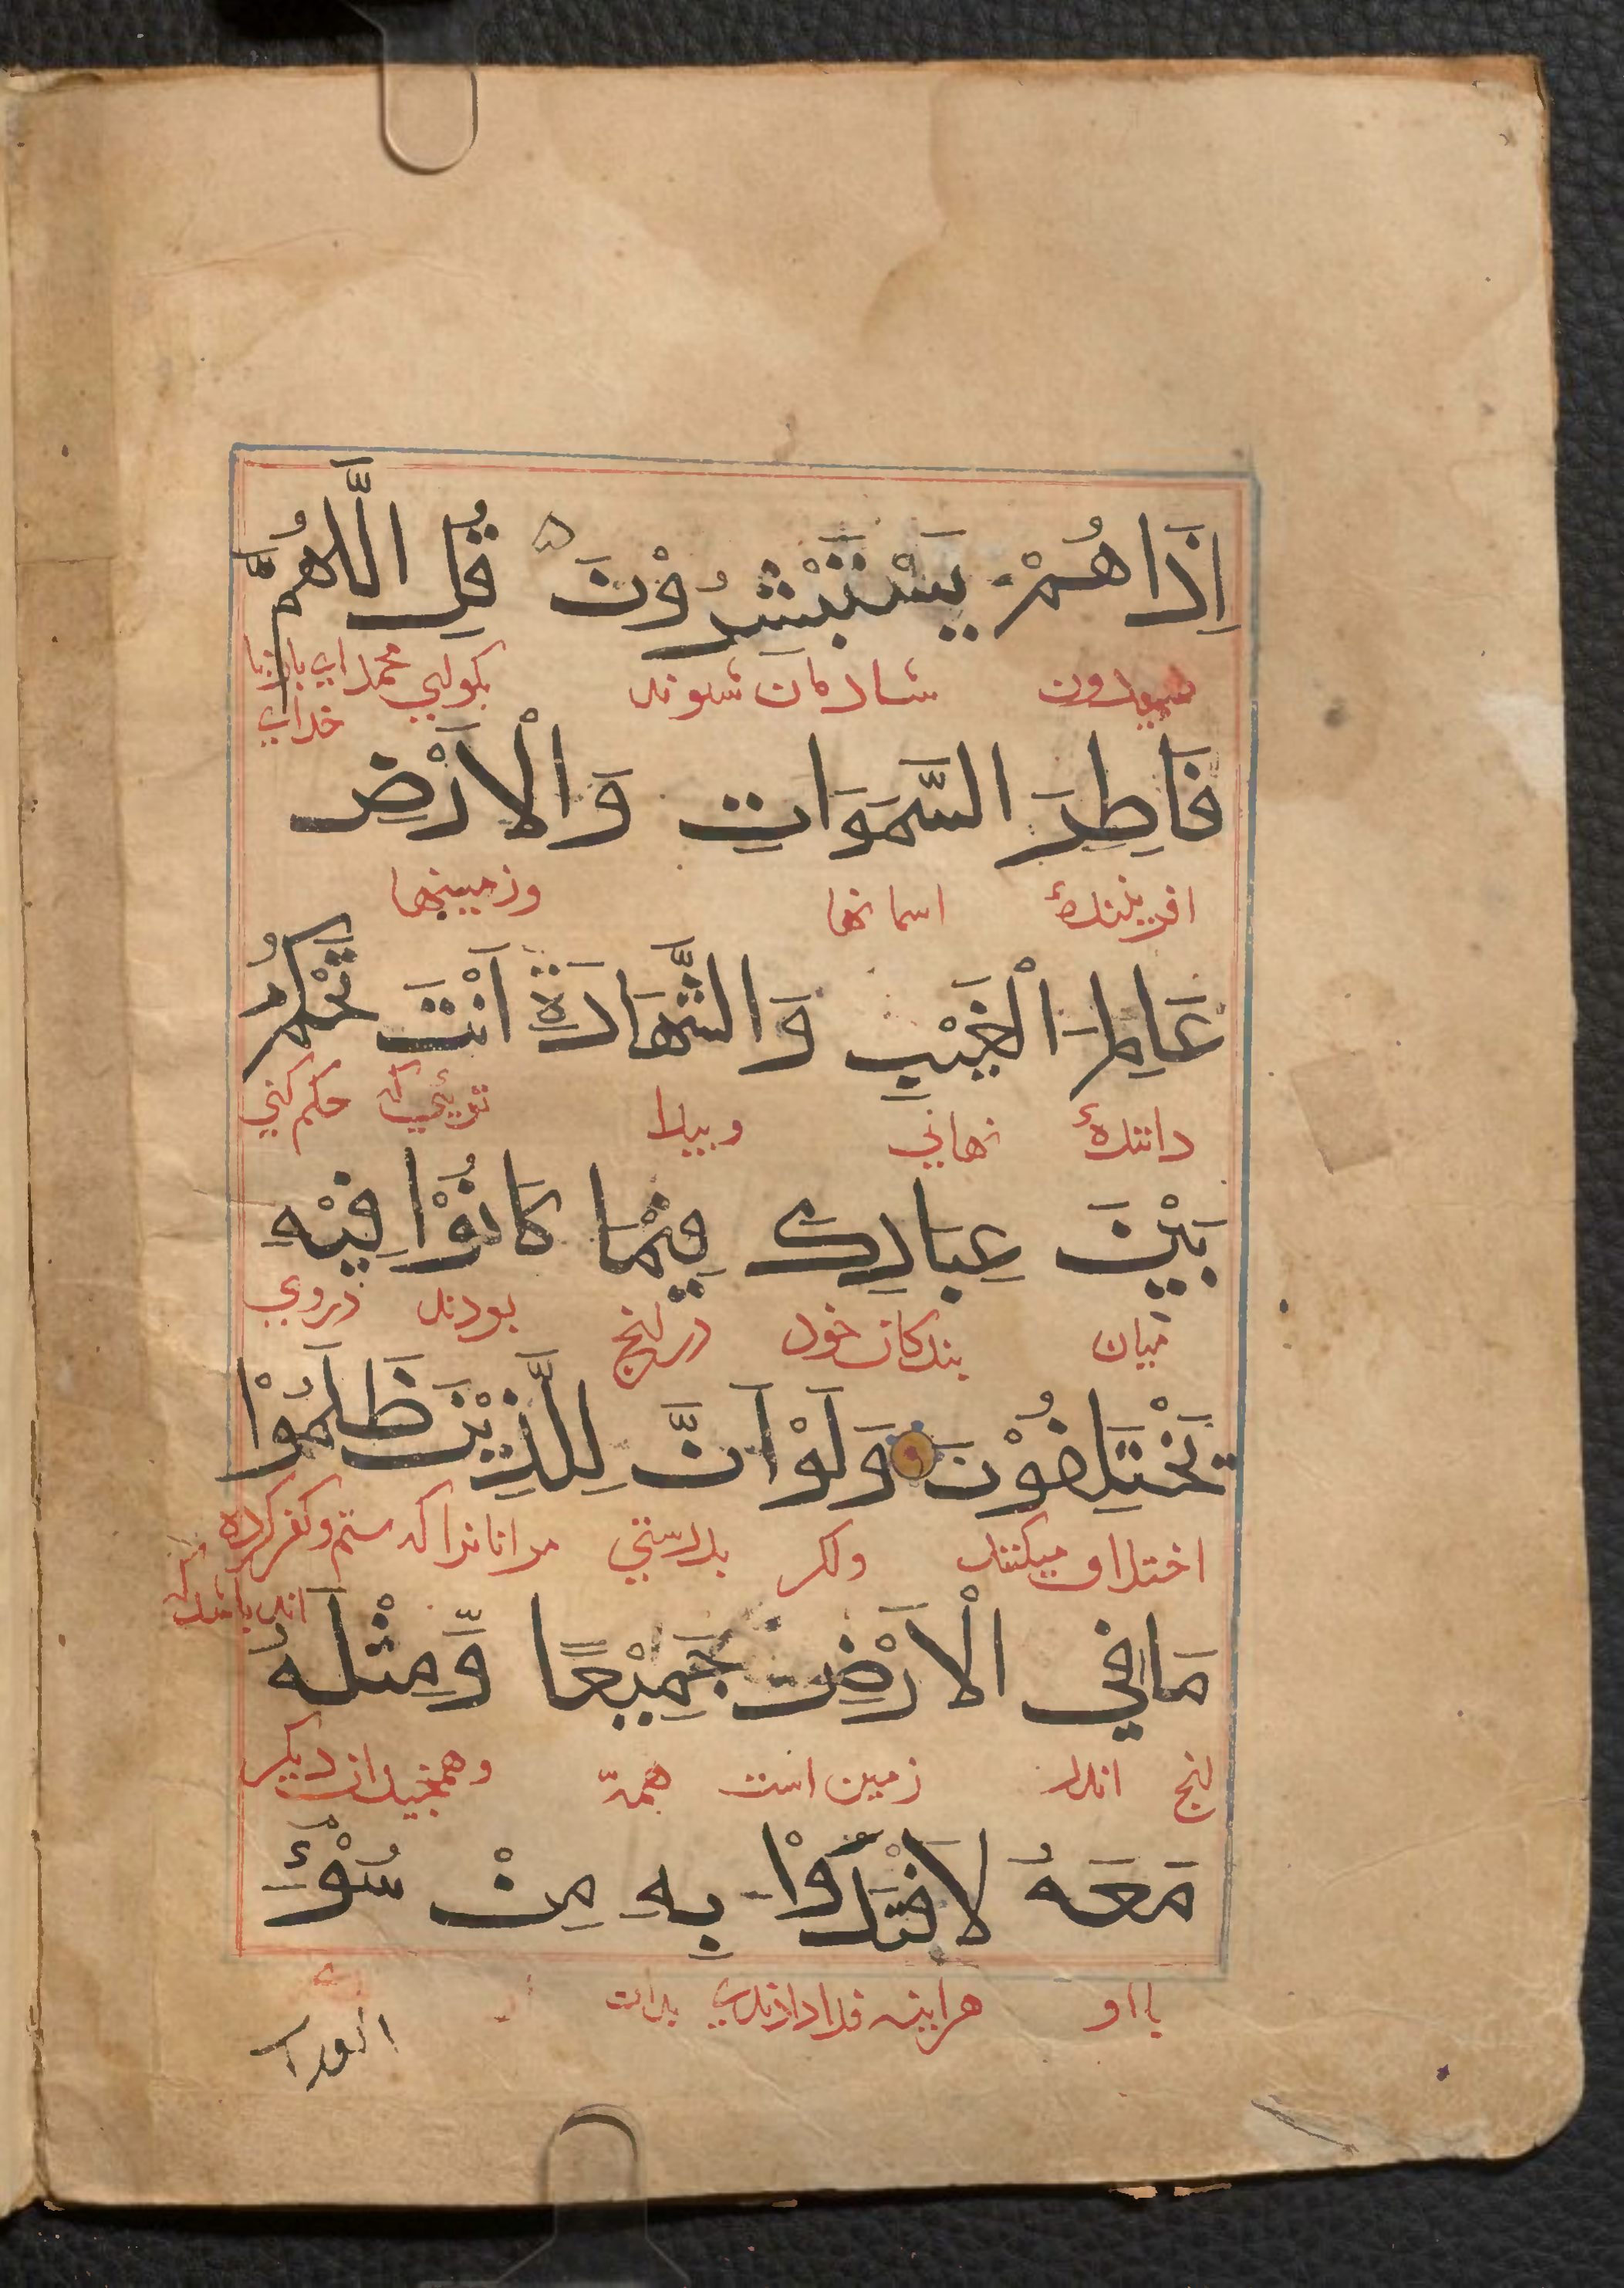 اِذَا هُمْ يَسْتَبْشِرُوْنَ قُلِ الَّلهُمَّ
شادمان شوند بکوای محمد ای بار
خدای
فَاطِرَ السَّمَوَاتِ وَالْاَرْضِ
افریننده اسمانها وزمینها
عَالِمَ الْغَيْبِ وَالشَّهَادَةِ اَنْتَ تَحْكُمُ
داننده نهانی وپیدا توئی که حکم کنی
بَيْنَ عِبَادِكَ فِيْمَا كَانُوْا فِيْهِ
میان بندکان خود در انج بودند دروی
تَخْتَلِفُوْنَ وَلَوْ اَنَّ لِلَّذِيْنَ ظَلَمُوْا
اختلاف میکنند واکر بدرستی مر انانرا که ستم وکفر کرده
اند باشد
مَا فِي الْاَرْضِ جَمِيْعًا وَّمِثْلَهُ
انج اندر زمین است همه وهمچندان دیکر
مَعَهُ لَافْتَدَوْا بِهِ مِنْ سُوْءِ
با او هراینه فدا دادندی بدان
العذاب